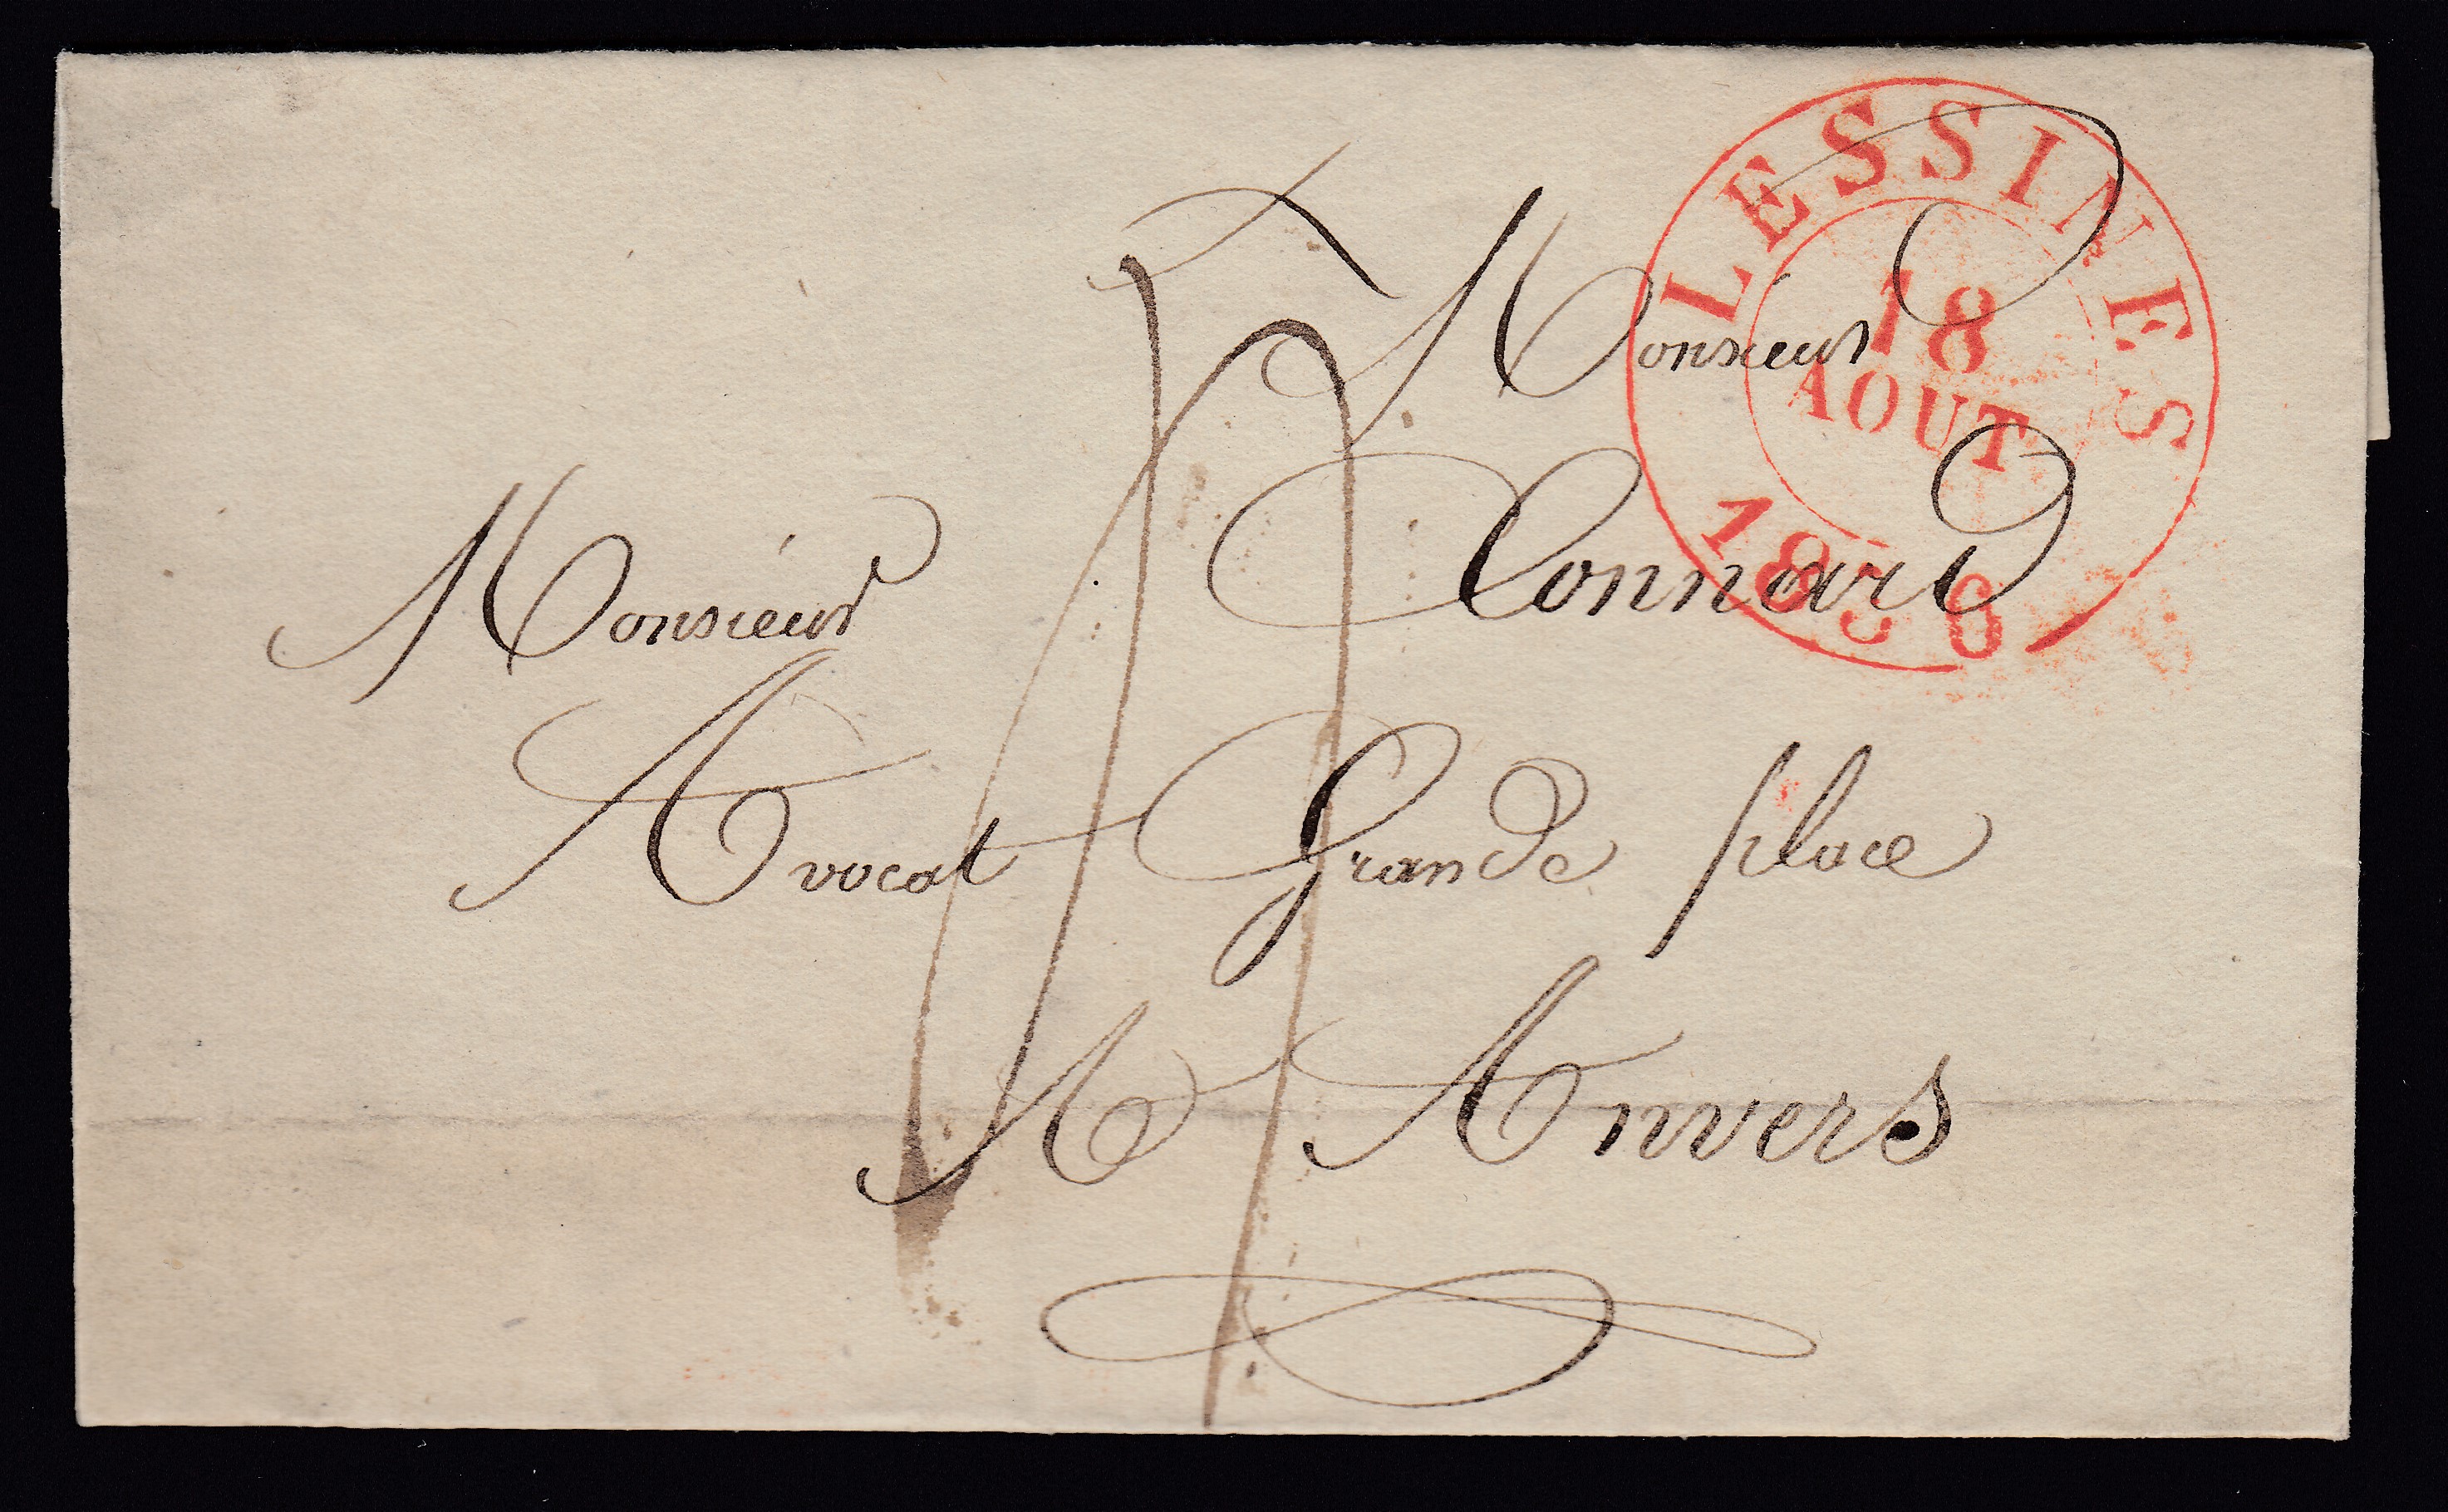 LESSINES
18
AOUT
1836
Monsieur
Monsieur Connard
Avocat Grande place
A Anvers